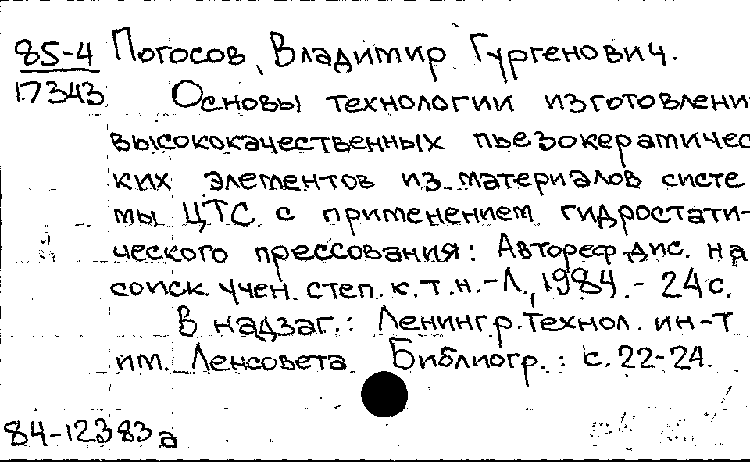 85-4 Погосов, Владимир Гургенович.
17343 Основы технологии изготовлени
высококачественных пьезокератичес
ких элементов из материалов систе
мы ЦТС с применением гидростати-
ческого прессования: Автореф дис. на
соиск. учен. степ. к.т.н.-Л., 1984.- 24 с.
В надзаг.: Ленингр. технол. ин-т
им. Ленсовета Библиогр.: с. 22-24.
84-12383а